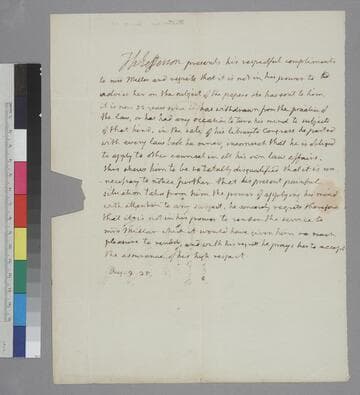 Th Jefferson presents his respectful compliments
to miss Miller and regrets that it is not in his power to
advise her on the subject of the papers she has sent to him.
it is now 52 years since he has withdrawn from the practice of
the law, or has had any occasion to turn his mind to subjects
of that kind. in the sale of his library to Congress he parted
with every law book he owned, insomuch that he is obliged
to apply to other counsel in all his own law affairs.
this shews him to be so totally disqualified that it is un
necessary to notice further that his present painful
situation takes from him the power of applying his mind
with attention to any subject. he sincerely regrets therefore
that it is not in his power to render the service to
miss Miller which it would have given him so much
pleasure to render, and with his regret he prays her to accept
the assurance of his high respect.
Aug. 9. 25.